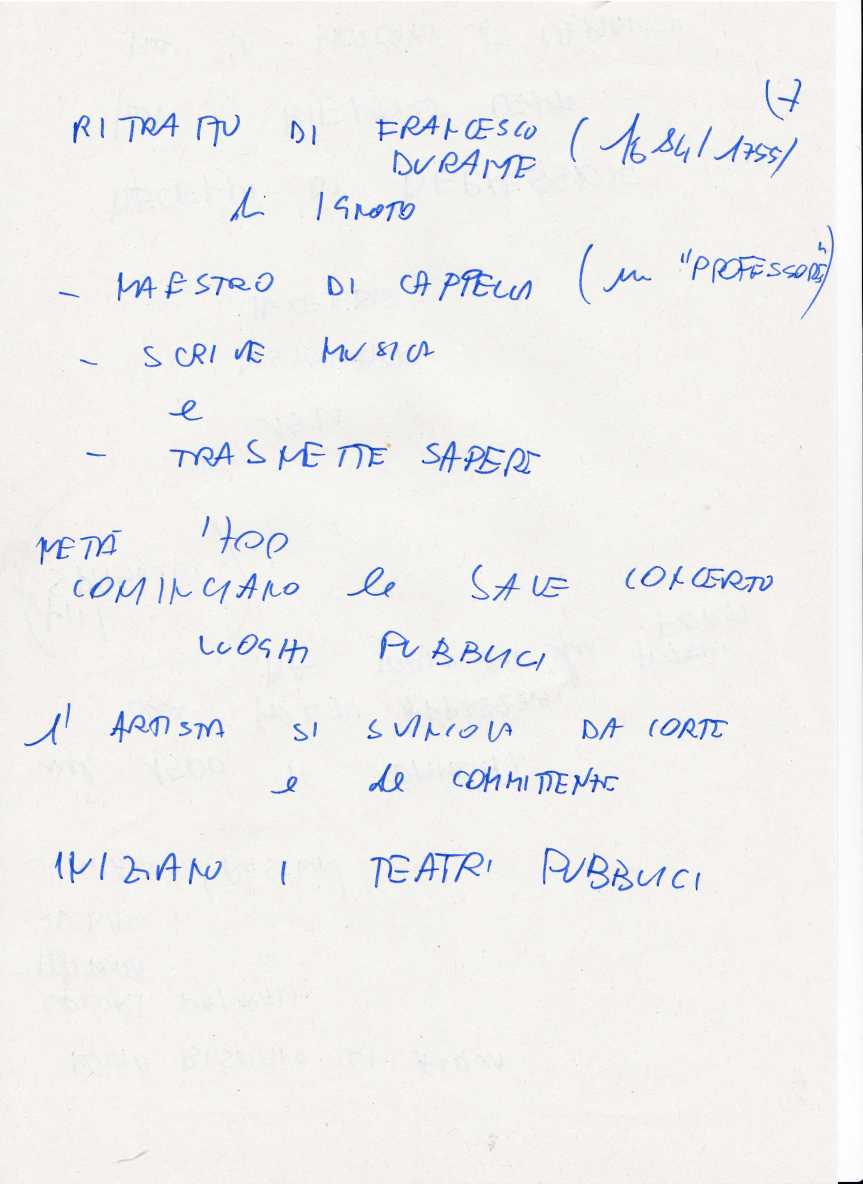 (7
RITRATTO DI FRANCESCO (1684/1755)
DURANTE
di IGNOTO
- MAESTRO DI CAPPELLA (un "PROFESSORE")
- SCRIVE MUSICA
e
- TRASMETTE SAPERE
METÀ '700
COMINCIANO le SALE CONCERTO
LUOGHI PUBBLICI
l' ARTISTA SI SVINCOLA DA CORTE
e dal COMMITTENTE
INIZIANO I TEATRI PUBBLICI